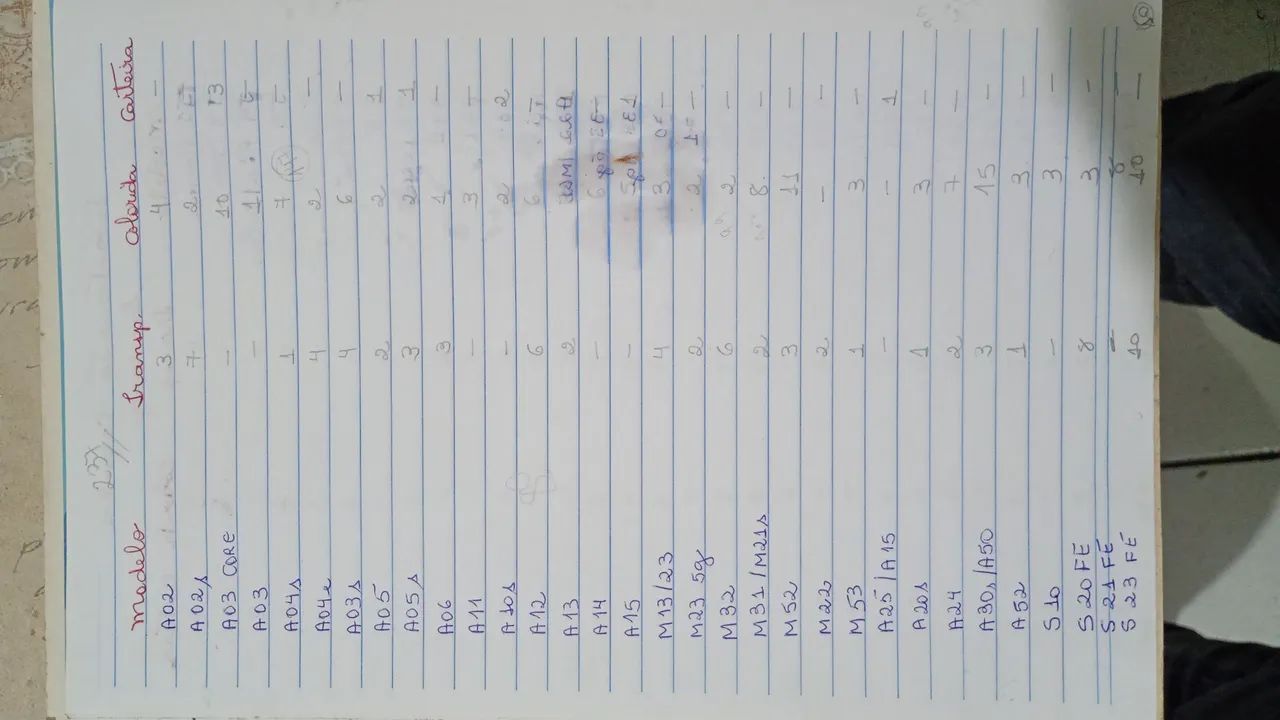 237
Modelo Transp. Colorida Carteira
A02 3 4 —
A02s 7 2
A03 CORE — 10 13
A03 — 11
A04s 1 7
A04e 4 2 —
A03s 4 6 —
A05 2 2 1
A05s 3 2 1
A06 3 1 —
A11 — 3 —
A10s — 2 02
A12 6 6
A13 2
A14 — 6
A15 — 5
M13/23 4 3 —
M23 5g 2 2 —
M32 6 2 —
M31/M21s 2 8 —
M52 3 11 —
M22 2 — —
M53 1 3 —
A25/A15 — — 1
A20s 1 3 —
A24 2 7 —
A30s/A50 3 15 —
A52 1 3 —
S10 — 3 —
S20 FE 8 3 —
S21 FE — 8 —
S23 FE 10 10 —